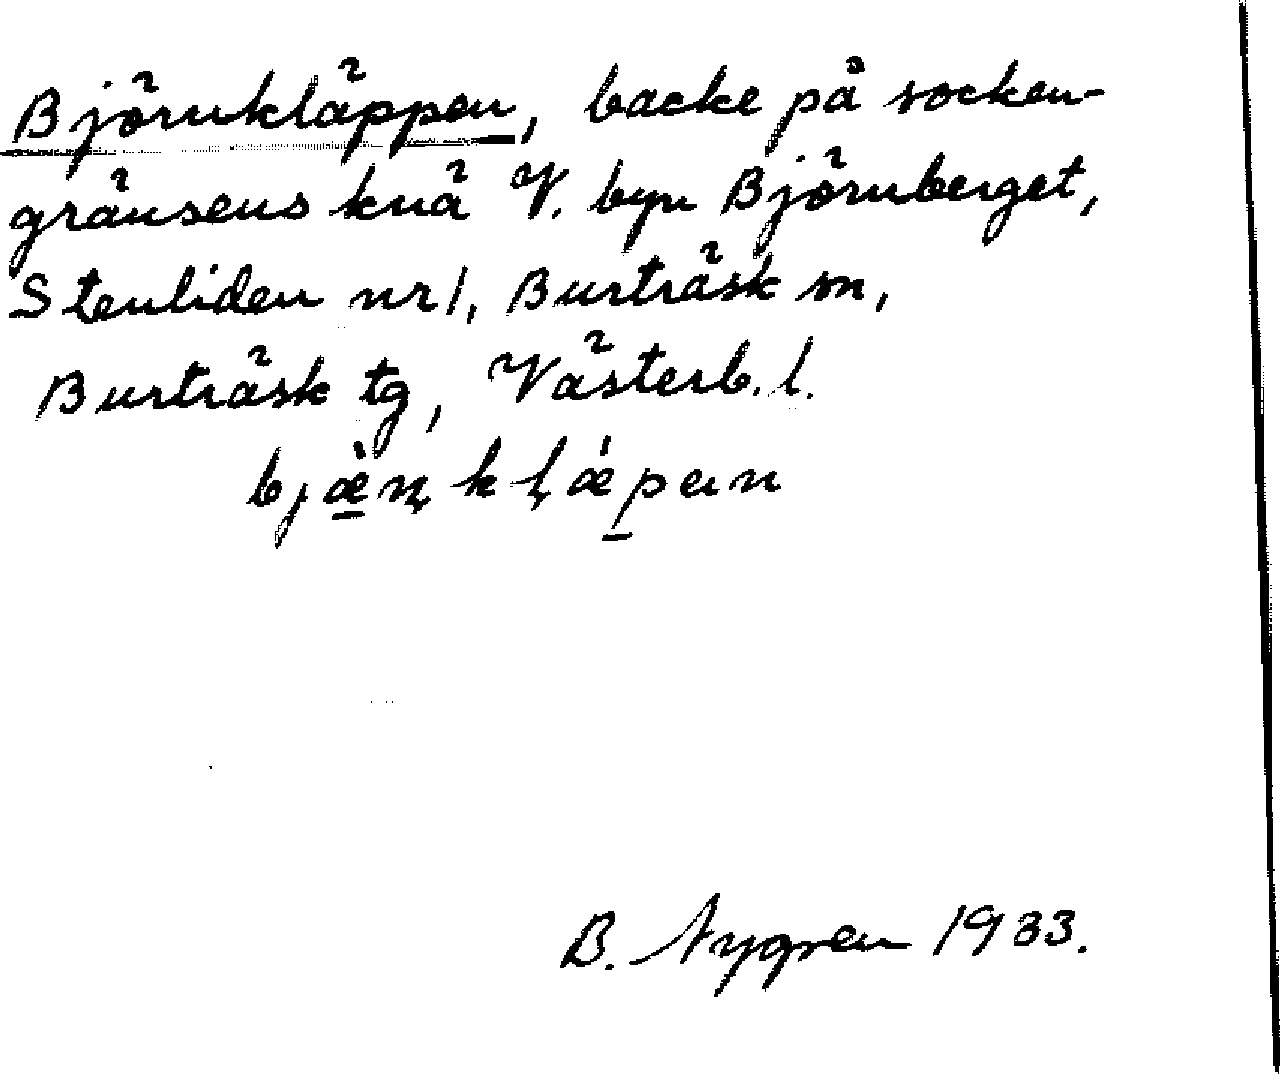 Björnkläppen, backe på socken-
gränsens knä V. byn Björnberget,
Stenliden nr 1, Burträsk sn,
Burträsk tg, Västerb. l.
bjæ̀ṇkḷǽpen
B. Nygren 1933.